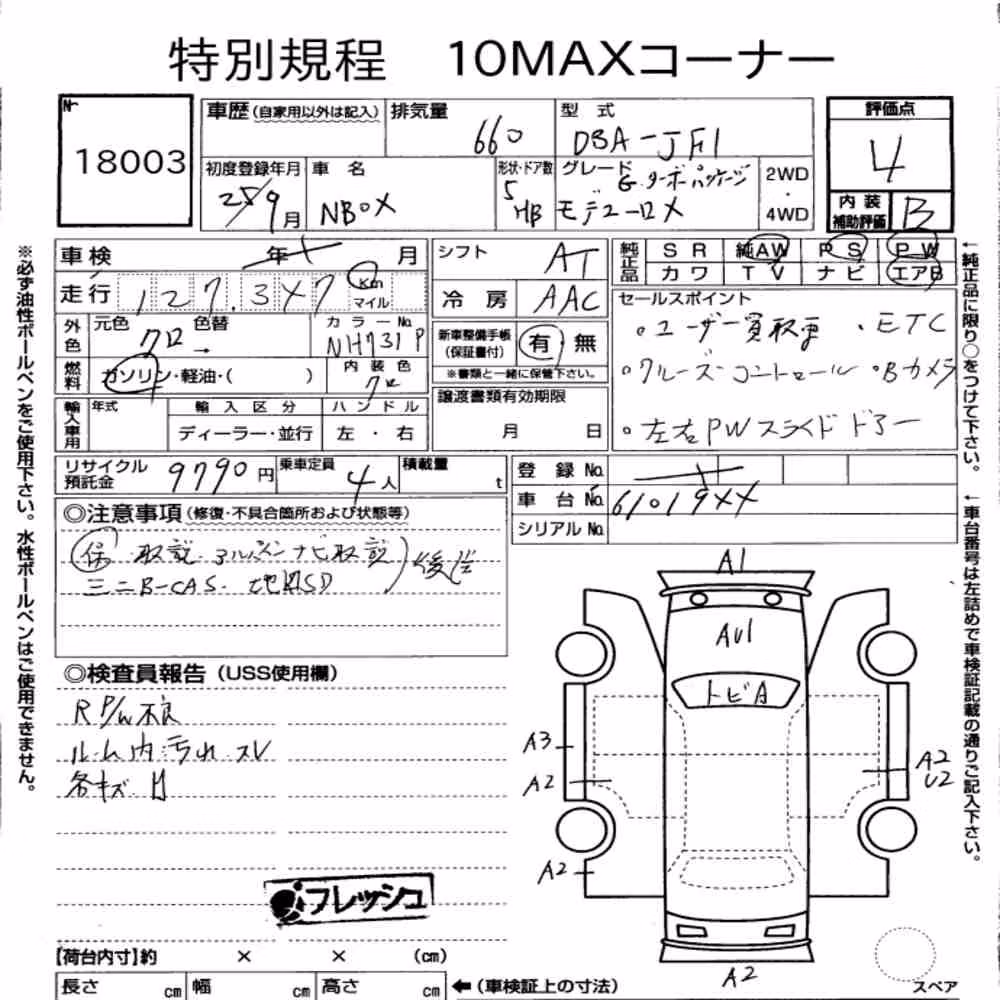 特別規程 10MAXコーナー
№
18003
車歴(自家用以外は記入)
排気量
660
型式
DBA-JF1
評価点
4
初度登録年月
25/9月
車名
NBOX
形状・ドア数
5
HB
グレード
G.ターボパッケージ
モデューロX
2WD
・
4WD
内装
補助評価
B
車検 年 月
走行 127.347 km
マイル
外色
元色 クロ → 色替
カラーNo.
NH731P
燃料
ガソリン・軽油・( )
内装色
クロ
輸入車用
年式
輸入区分
ディーラー・並行
ハンドル
左・右
シフト AT
冷房 AAC
新車整備手帳
(保証書付)
有 無
※書類と一緒に保管下さい。
譲渡書類有効期限
月 日
純正品
SR 純AW PS PW
カワ TV ナビ エアB
セールスポイント
。ユーザー買取車 ・ETC
。クルーズコントロール 。Bカメラ
。左右PWスライドドアー
リサイクル
預託金
9790円
乗車定員
4人
積載量
t
登録No.
車台No. 61019XX
シリアルNo.
◎注意事項(修復・不具合箇所および状態等)
保 取説 アルパインナビ取説
ミニB-CAS. 地図SD
後送
◎検査員報告(USS使用欄)
R P/W不良
ルーム内汚れ スレ
各キズ 凹
フレッシュ
A1
AU1
トビA
A3
A2
A2
A2
U2
A2
スペア
【荷台内寸】約 × × (cm)
長さ cm 幅 cm 高さ cm
←(車検証上の寸法)
※必ず油性ボールペンをご使用下さい。水性ボールペンはご使用できません。
←純正品に限り○をつけて下さい。
←車台番号は左詰めで車検証記載の通りご記入下さい。